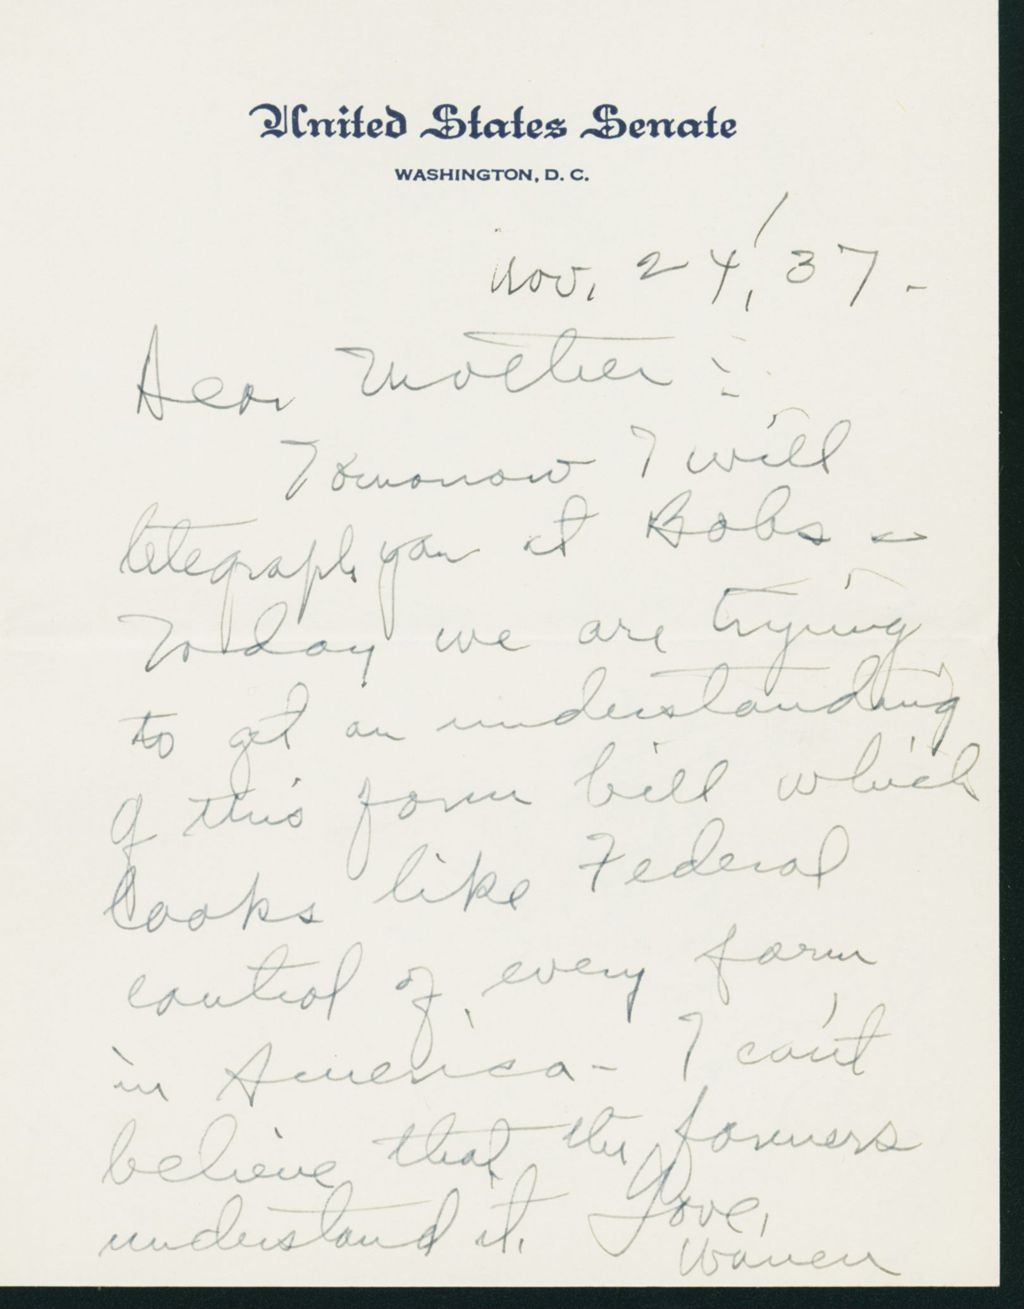 United States Senate
WASHINGTON, D. C.
Nov. 24, '37 -
Dear Mother :
Tomorrow I will
telegraph you at Bobs -
Today we are trying
to get an understanding
of this farm bill which
looks like Federal
control of every farm
in America - I can't
believe that the farmers
understand it. Love,
Warren